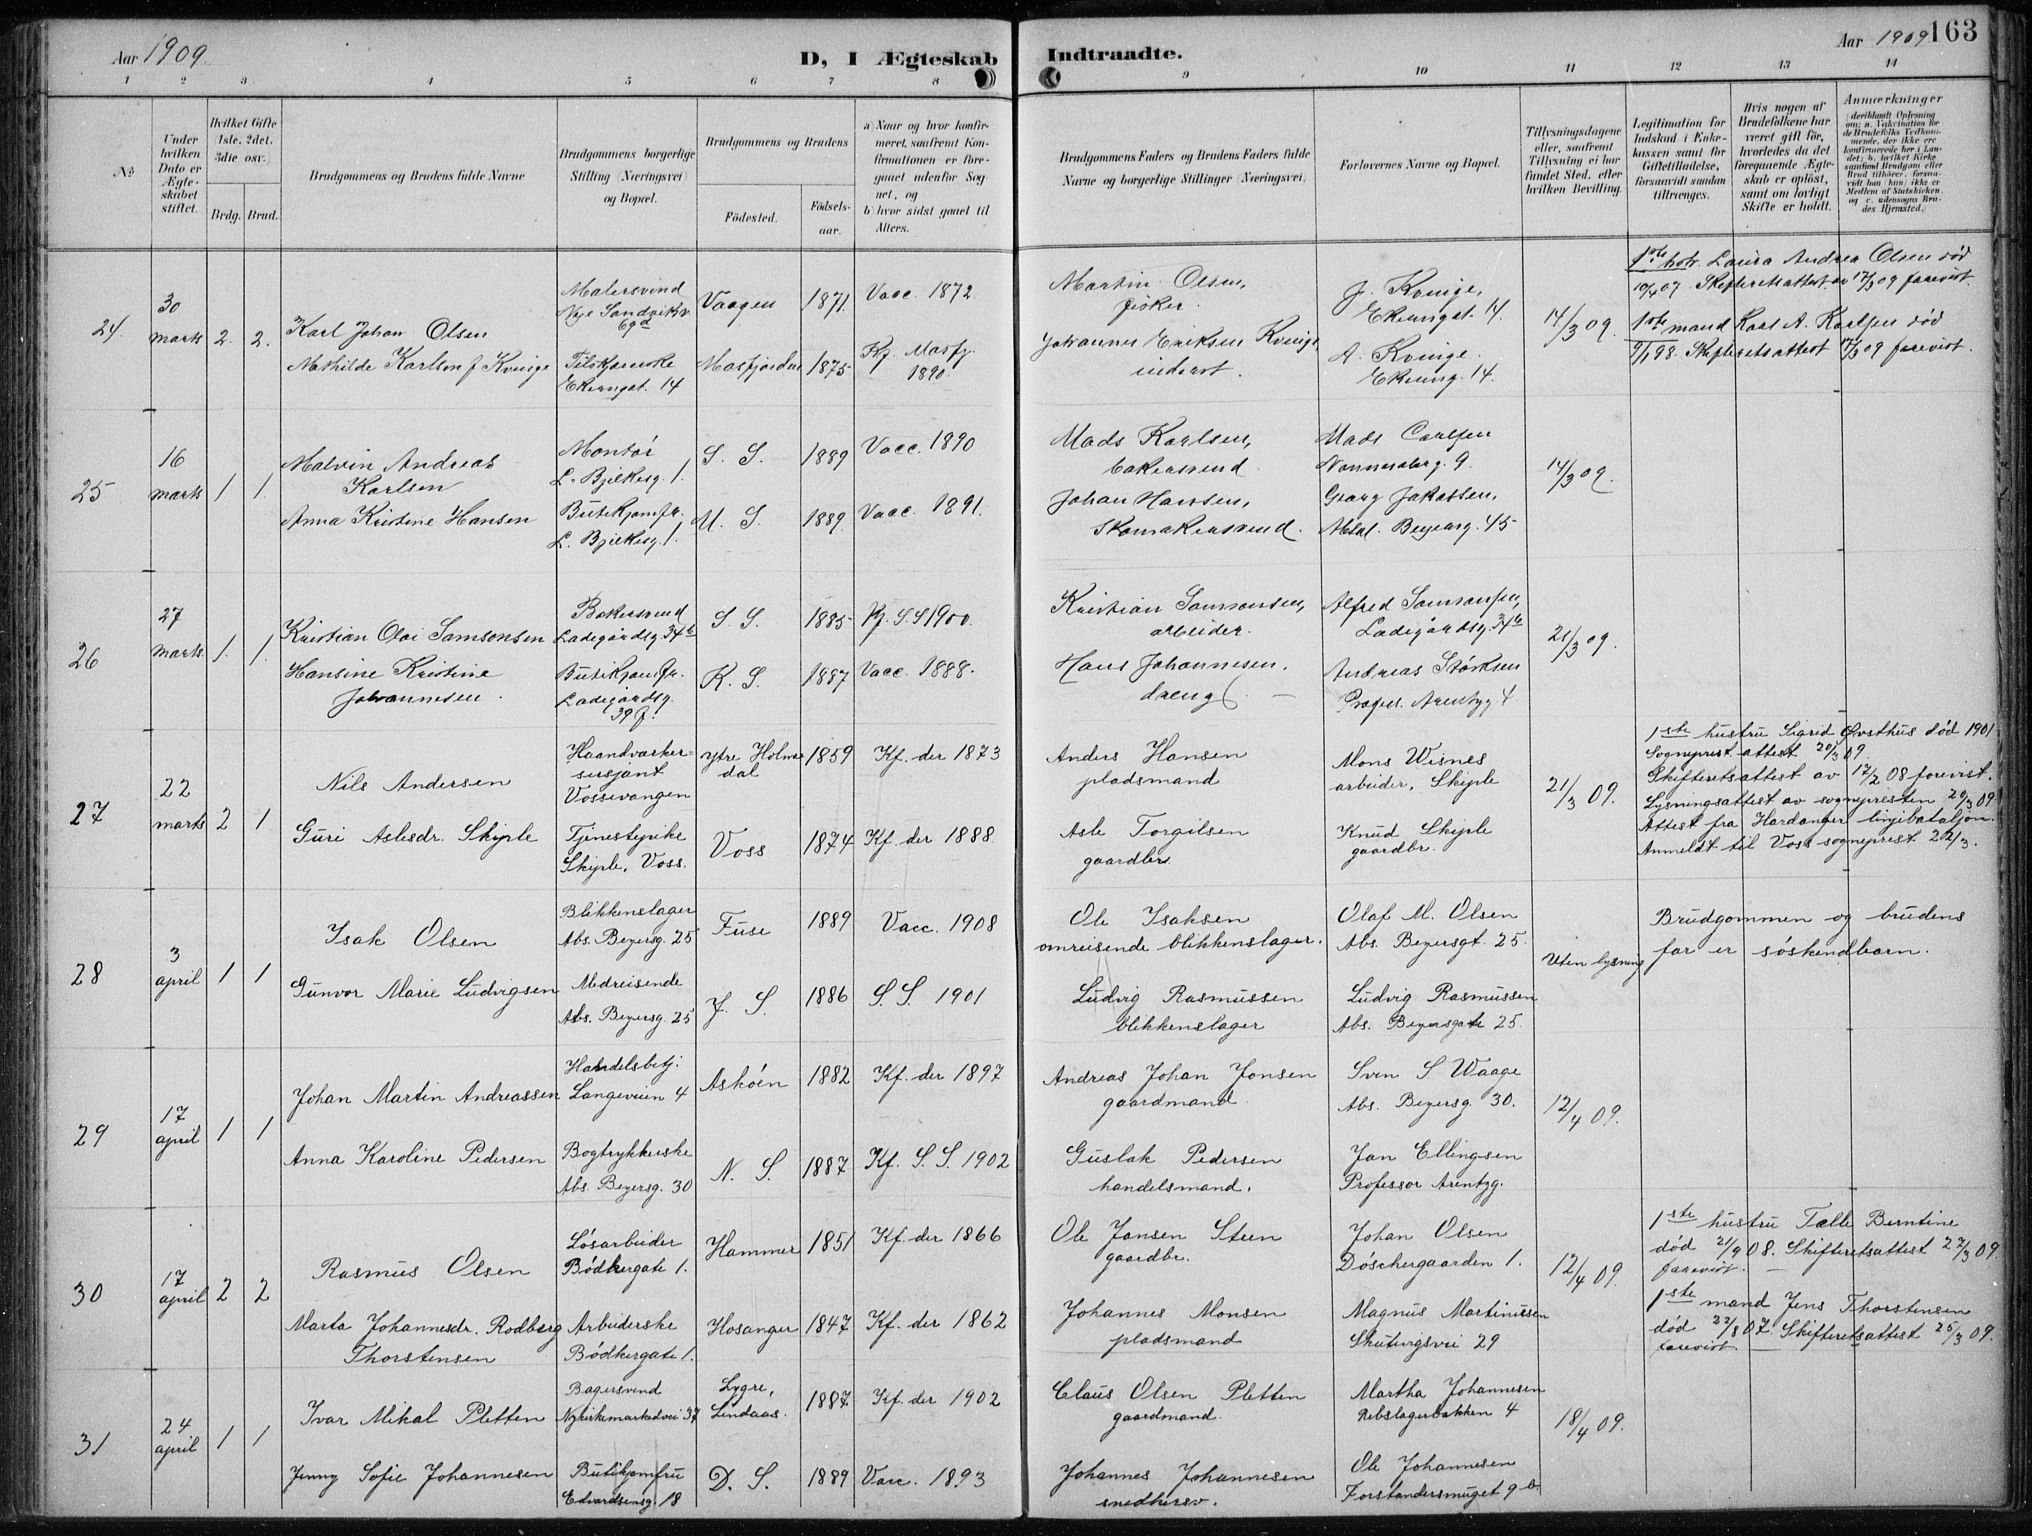 Aar 1909. D, I Ægteskab Indtraadte. Aar 1909 163
1 2 3 4 5 6 7 8 9 10 11 12 13 14
No.
Under hvilken Dato er Ægteskabet stiftet.
Hvilket Gifte 1ste, 2det, 3die osv.)
Brdg. Brud.
Brudgommens og Brudens fulde Navne
Brudgommens borgerlige Stilling (Næringsvei) og Bopæl.
Brudgommens og Brudens
Födested. Födsels-aar.
a) Naar og hvor konfirmeret, samfremt Konfirmationen er foregaaet udenfor Sognet, og
b) hvor sidst gaaet til Alters.
Brudgommens Faders og Brudens Faders fulde Navne og borgerlige Stillinger (Næringsvei)
Forlovernes Navne og Bopæl.
Tillysningsdagene eller, samfremt Tillysning ei har fundet Sted, efter hvilken Bevilling.
Legitimation for Indskud i Enkekassen samt for Giftetilladelse, forsaavidt saadan tiltrænges.
Hvis nogen af Brudefolkene har været gift før, hvorledes da det foregaaende Ægteskab er oplöst, samt om lovligt Skifte er holdt.
Anmærkninger
(deriblandt Oplysning om: a. Vakcination for de Brudefolks Vedkommende, der ikke ere konfirmerede her i Landet; b. hvilket Kirkesamfund Brudgom eller Brud tilhörer, forsaavidt han (hun) ikke er Medlem af Statskirken, og c. udensogns Brudes Hjemsted.)
24. 30 marts 2. 2.
Karl Johan Olsen
Malersvend
Nye Sandviksv. 69d
Vaagen 1871. Vacc. 1872.
Martin Olsen,
fisker.
J. Kvinge,
Ekrengat. 14
14/3 09.
1ste hstr. Laura Andrea Olsen død
10/4 07. Skifteretsattest av 17/3 09 forevist.
Mathilde Karlsen f Kvinge
Ekrengat. 14
Masfjorden 1875 Kf. Masfj. 1890.
Johannes Eriksen Kvinge
inderst.
A. Kvinge.
Ekreng. 14.
1ste mand Lars A. Karlsen død
9/1 98. Skifteretsattest 17/3 09 forevist.
25 16 marts 1 1.
Malvin Andreas
Karlsen
Montør
L. Bjelkesg. 1.
S. S. 1889 Vacc. 1890
Mads Karlsen,
bakersvend.
Mads Carlsen
Nonneseterg. 9.
14/3 09.
Anna Kristine Hansen
Butikjomfr.
L. Bjelkesg. 1.
M. S. 1889. Vacc. 1891.
Johan Hansen,
Skomakersvend.
Georg Jakobsen,
Absal. Beyersg. 45
26 27 marts. 1. 1.
Kristian Olai Samsonsen
Bakersvend
Ladegårdsg. 34b
S. S. 1885 Kf. S. S 1900.
Kristian Samsonsen,
arbeider.
Alfred Samsonsen,
Ladegårdsg. 34b
21/3 09.
Hansine Kristine
Johannesen.
Butikjomfr.
Ladegårdsg.
39 f.
K. S. 1887 Vacc. 1888.
Hans Johannesen.
dreng.
Andreas Størksen
Profes. Arentzg 4
27 22 marts 2 1
Nils Andersen
Haandverker-
sersjant
Vossevangen
Ytre Holme
dal
1859 Kf. der 1873
Anders Hansen
pladsmand
Mons Wisnes
arbeider, Skiple
21/3 09.
1ste hustru Sigrid Øvsthus død 1901
Sogneprest attest 20/3 09.
Skifteretsattest av 17/2 08 forevist.
Lysningsattest av sognepresten 20/3 09
Attest fra Hardanger linjebataljon.
Anmeldt til Voss sogneprest 22/3.
Guri Aslesdr. Skiple
Tjenestepike
Skiple, Voss.
Voss 1874 Kf. der 1888
Asle Torgilsen
gaardbr.
Knud Skiple
gaardbr.
28 3 april 1 1
Isak Olsen
Blikkenslager
Abs. Beyersg. 25
Fuse 1889 Vacc. 1908
Ole Isaksen
omreisende blikkenslager.
Olaf M. Olsen
Abs. Beyersgt. 25.
Uten lysning
Brudgommen og brudens
far er søskendbarn.
Gunvor Marie Ludvigsen
Medreisende
Abs. Beyersg. 25
J. S. 1886 S. S. 1901
Ludvig Rasmussen
blikkenslager
Ludvig Rasmussen
Abs. Beyersgate 25.
29 17 april 1 1
Johan Martin Andreassen
Handelsbetj.
Langeveien 4
Askøen 1882 Kf. der 1897
Andreas Johan Jonsen
gaardmand.
Sven S Waage
Abs. Beyersg. 30.
12/4 09.
Anna Karoline Pedersen
Bogtrykkerske
Abs. Beyersg. 30
N. S. 1887 Kf. S. S. 1902
Guslak Pedersen
handelsmand.
Jan Ellingsen
Professor Arentzg.
30 17 april 2 2
Rasmus Olsen
Løsarbeider
Bødkergate 1.
Hammer 1851 Kf. der 1866
Ole Jansen Steen
gaardbr.
Johan Olsen
Døschergaarden 1.
12/4 09.
1ste hustru Tælle Berntine
død 21/9 08. Skifteretsattest 22/3 09.
forevist.
Marta Johannesdr. Rodberg
Thorstensen
Arbeiderske
Bødkergate 1.
Hosanger 1847 Kf. der 1862
Johannes Monsen
pladsmand
Magnus Martinussen
Skutevigsvei 29
1ste mand Jens Thorstensen
død 22/8 07. Skifteretsattest 25/3 09.
forevist.
31 24. april 1 1
Ivar Mikal Pletten
Bagersvend
Nykirkemarkedvei 37
Lygre,
Lindaas.
1887 Kf. der 1902
Claus Olsen Pletten
gaardmand.
Martha Johannesen
Rebslagerbakken 4
18/4 09.
Jenny Sofie Johannesen
Butikjomfru
Edvardsensg. 18
D. S. 1889 Vacc. 1893
Johannes Johannesen
snedkersv.
Ole Johannesen
Forstandersmuget 9 b.